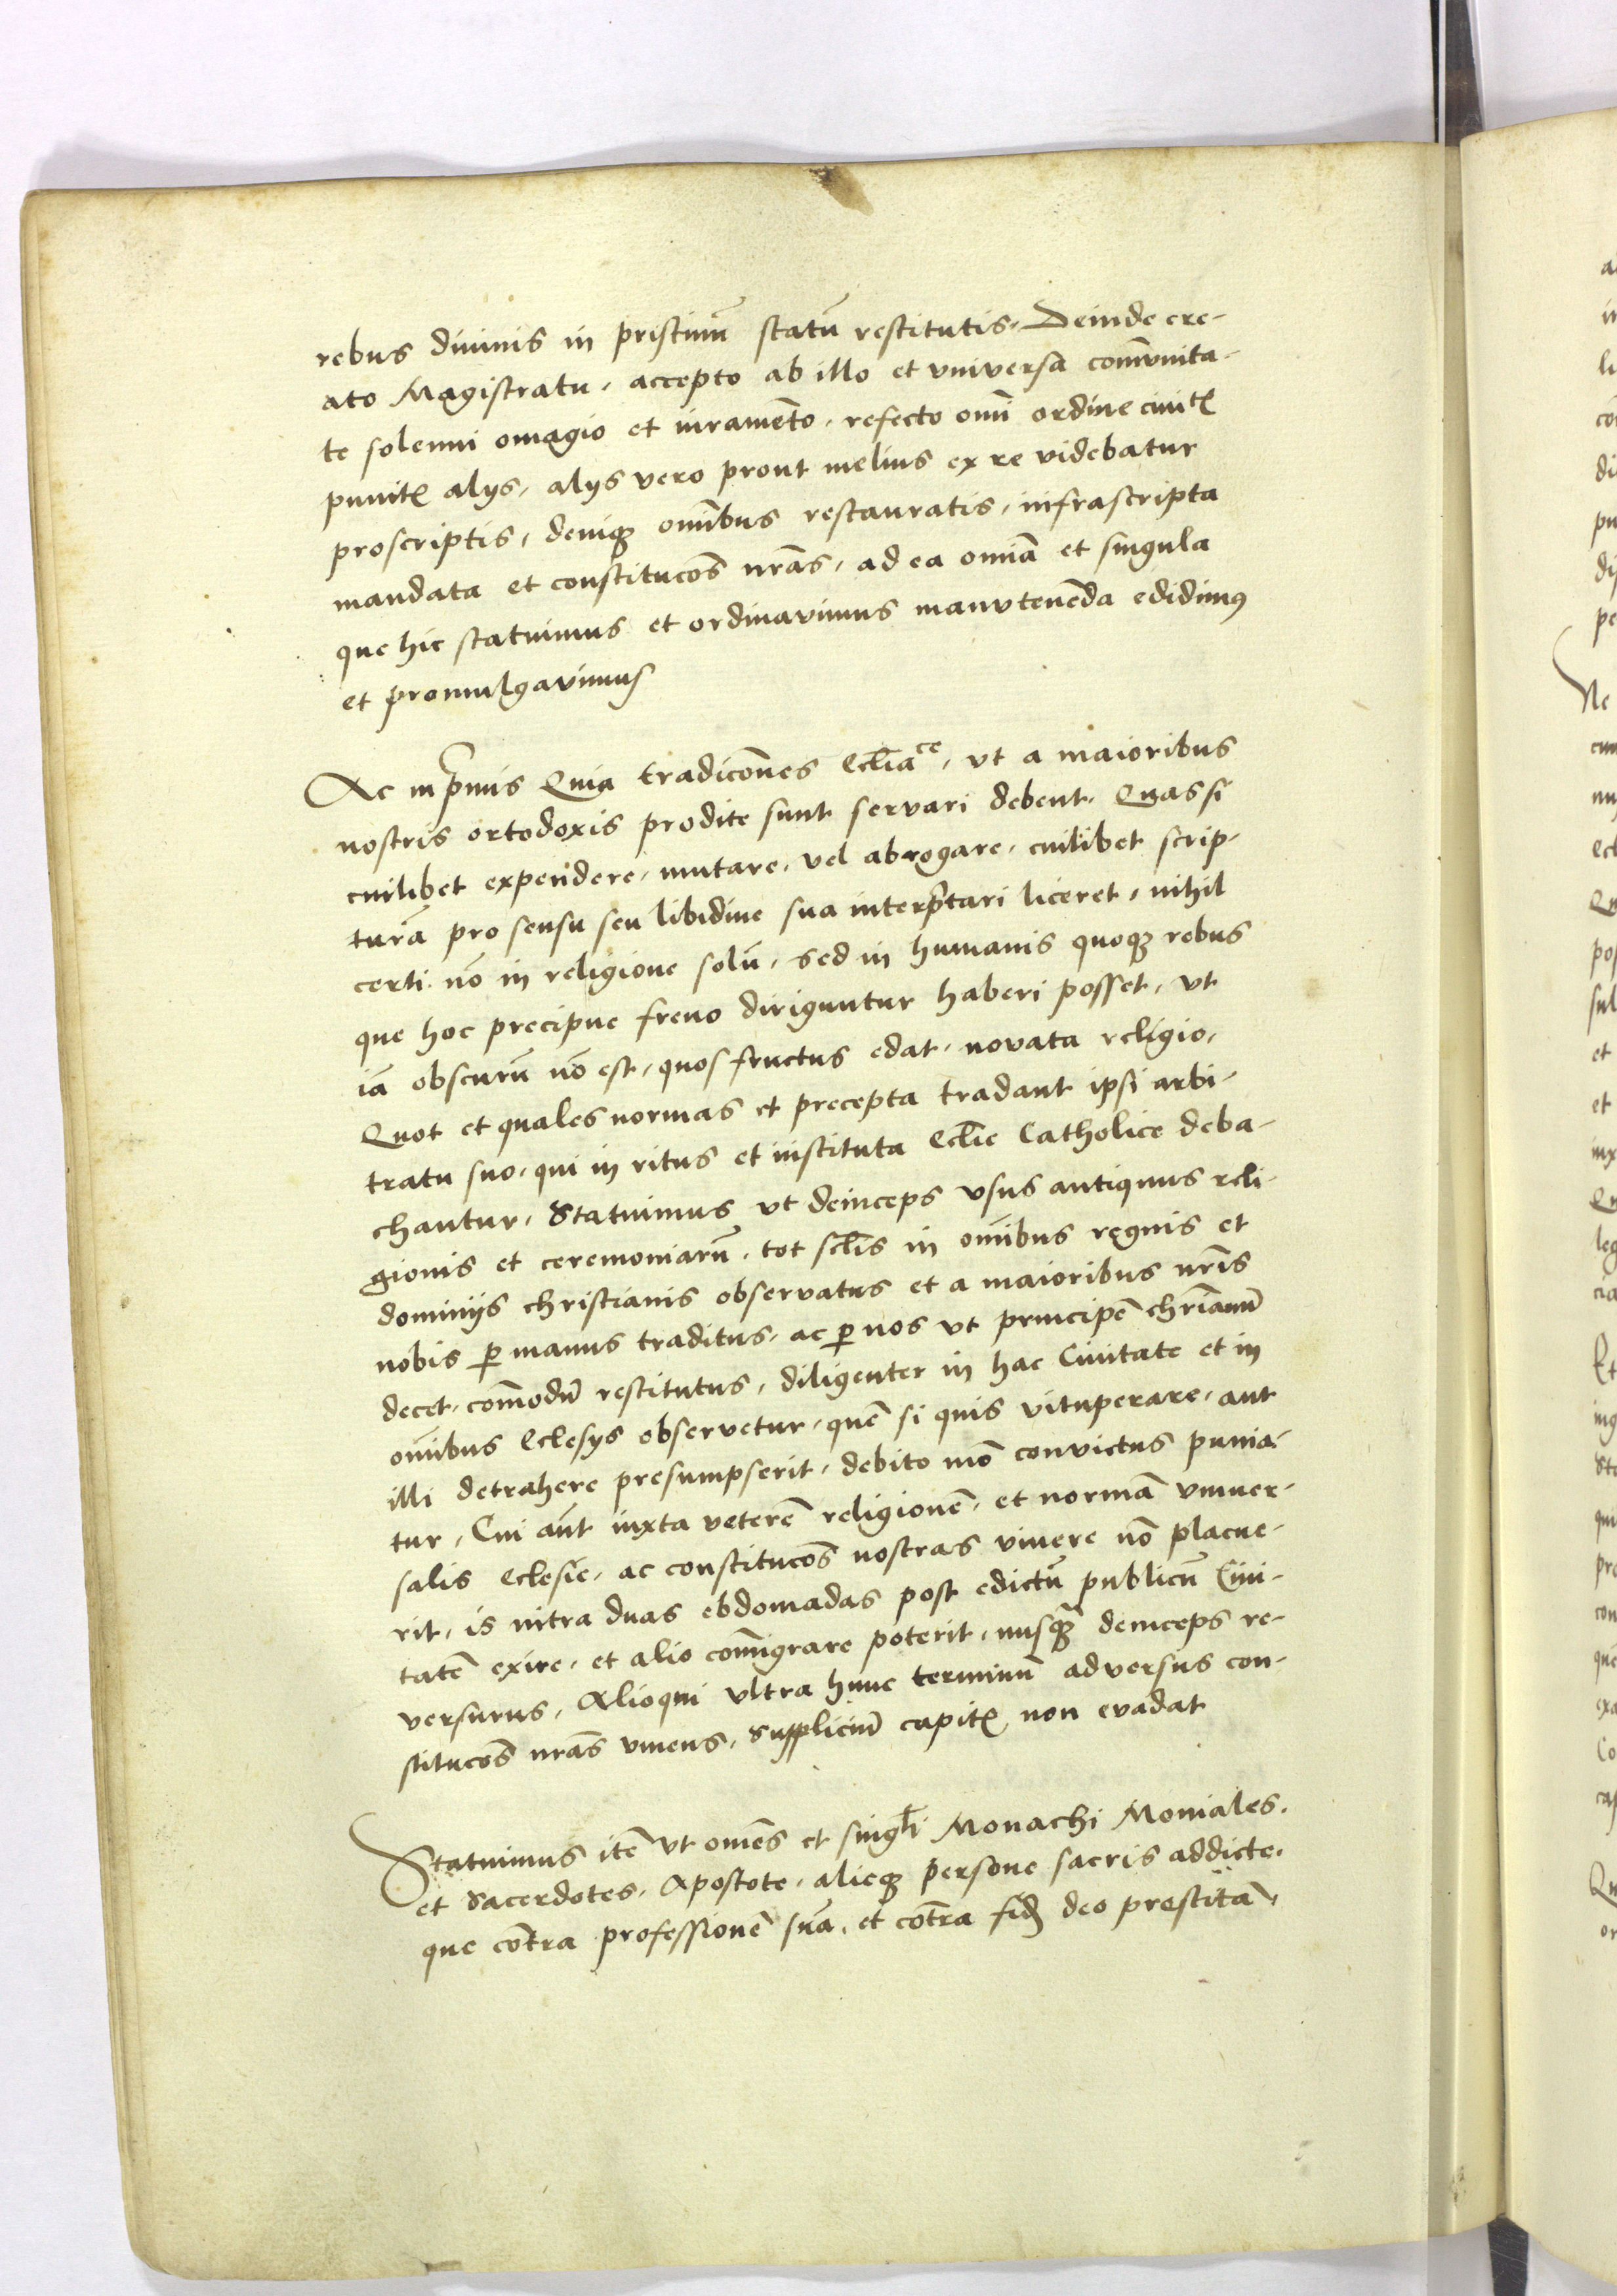 rebus diuinis in pristinũ statũ restitutis. Deinde cre-
ato Magistratu, accepto ab illo et vniversa com̃vnita-
te solenni omagio et iuramẽto, refecto om̃i ordine ciuitꝭ
punitꝭ alijs, alijs vero prout melius ex re videbatur
proscriptis, deniqȝ om̃ibus restauratis, infrascripta
mandata et constituc̃os nr̃as, ad ea om̃ia et singula
que hic statuimus et ordinavimus manvtenẽda edidimꝰ
et promulgavimus
Ac inp̃mis Quia tradic̃ones Ecl̃iaᶜᵉ, vt a maioribus
nostris ortodoxis prodite sunt servari debent. Quas si
cuilibet expendere, mutare, vel abrogare, cuilibet scrip-
turã pro sensu seu libidine sua interp̃tari liceret, nihil
certi nõ in religione solũ, sed in humanis quoqȝ rebus
que hoc precipue freno diriguntur haberi posset, vt
iã obscurũ nõ est, quos fructus edat, novata religio,
Quot et quales normas et precepta tradant ipsi arbi-
tratu suo, qui in ritus et instituta Ecl̃ie Catholice deba-
chantur, Statuimus vt deinceps vsus antiquus reli-
gionis et ceremoniarũ, tot scl̃is in om̃ibus regnis et
dominijs christianis observatus et a maioribus nr̃is
nobis ꝑ manus traditus, ac ꝑ nos vt principẽ chr̃ianũ
decet, com̃odũ restitutus, diligenter in hac Ciuitate et in
om̃ibus Eclesijs observetur, quẽ si quis vituperare, aut
illi detrahere presumpserit, debito mõ convictus punia-
tur, Cui aũt iuxta veterẽ religionẽ, et normã vniuer-
salis Eclesie, ac constituc̃os nostras viuere nõ placue-
rit, is intra duas ebdomadas post edictũ publicũ Ciui-
tatẽ exire, et alio com̃igrare poterit, nusqȝ̃ deinceps re-
versurus, Alioqui vltra hunc terminũ adversus con-
stituc̃os nr̃as viuens, Suppliciũ capitꝭ non evadat
Statuimus itẽ vt om̃es et singl̃i Monachi Moniales,
et Sacerdotes, Apostote, alieqȝ persone sacris addicte,
que cõtra professionẽ suã, et cõtra fid̃ deo prestitã,